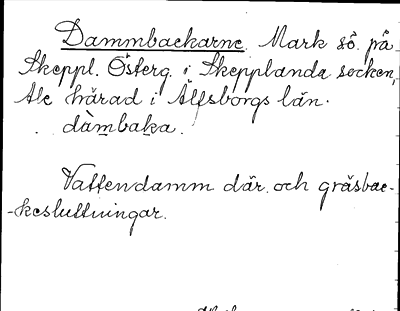 Dammbackarne. Mark sö. på
Skeppl. Österg. i Skepplanda socken,
Ale härad i Älfsborgs län.
dàmbaka.
Vattendamm där. och gräsbac-
-kesluttningar.